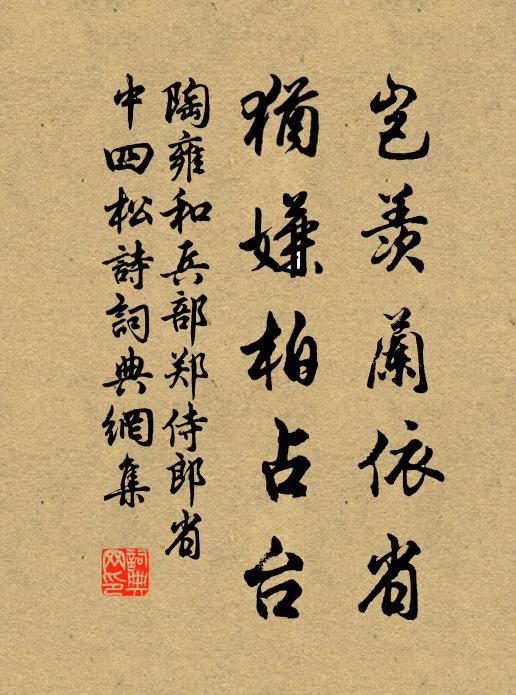 岂羡兰依省
犹嫌柏占台
陶雍和兵部郑侍郎省
中四松詩詞典網集
詞典網印